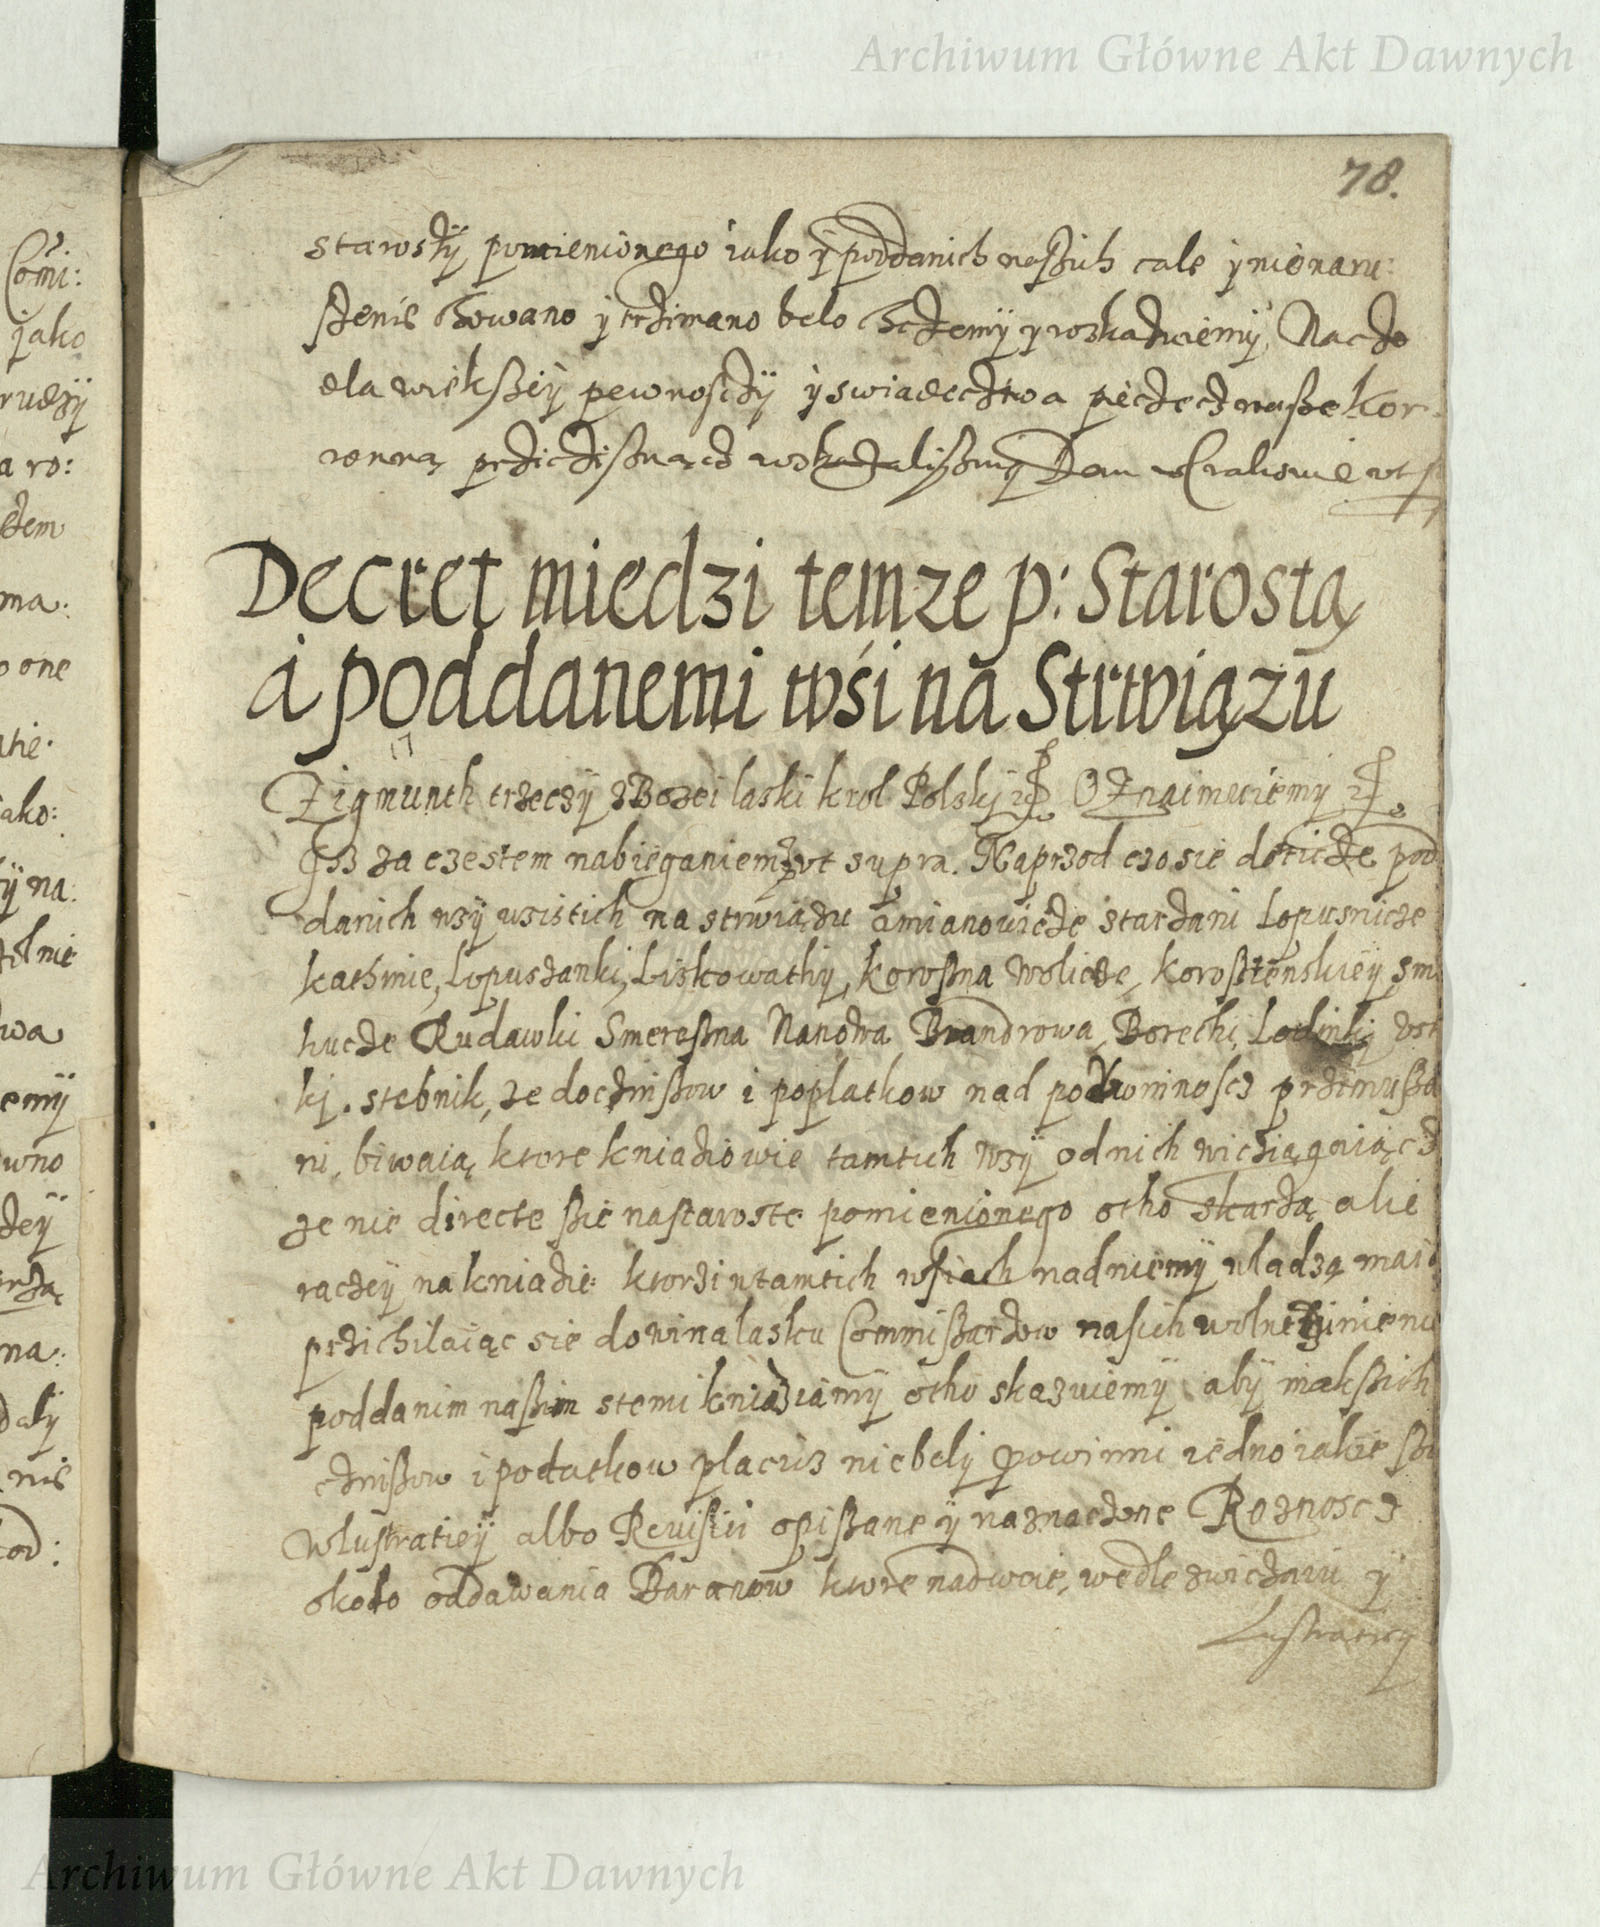 Archiwum Główne Akt Dawnych
78.
starosty pomienionego iako y poddanich naßich cale y nienaru:
ßenie chowano y trzimano belo chczemy y roskazuiemy, Na czo
dla wiekßiey pewnosczy y swiadecztwa pieczecz naße Kor
ronną prziczisnącz roskazalißmy Dan w Crakowie ut s
Decret miedzi temze p: Starostą
a poddanemi wśi na Strwiązu
Zigmunth trzeczy z Bozei laski krol Polsky Oznaimuiemy
Isz za czestem nabieganiem ut supra. Naprzod czo sie doticze pod
danich wsy wzistich na strwiązu a mianowicze starzani Lopusnicze
kathnie, Lopuszanki, Liskowathy, Koroßna Wolicze, Koroßtenskiey sm
hucze Rudawki Smereßna Nanowa Brandrowa, Borecki, Lodinky
ki. stebnik, ze do czinßow i poplatkow nad powinnoscz przimußa
ni, biwaią, ktore kniaziowie tamtich wsy od nich wicziągaiącz
ze nie directe ßie na staroste pomienionego otho skarżą alie
raczey na kniazie: ktorzi w tamtich wsiach nad niemy wladzą maią
przichilaiąc sie do winalasku Commißarzow nasich wolne
poddanim naßim stemi kniaziamy otho skazuiemy aby inakßich
czinßow i podatkow placicz nie bely powinni iedno iakie ßą
w lustratiey albo Revisii opißane y naznaczone Roznoscz
okolo oddawania Baranow ktore na dwoie, wedle zwiczaiu y
Lustratiey
Comi:
jako
a ro:
ma:
o one
ako:
y na:
lnie
wa
emy
wno
na:
nie
od:
Archiwum Główne Akt Dawnych